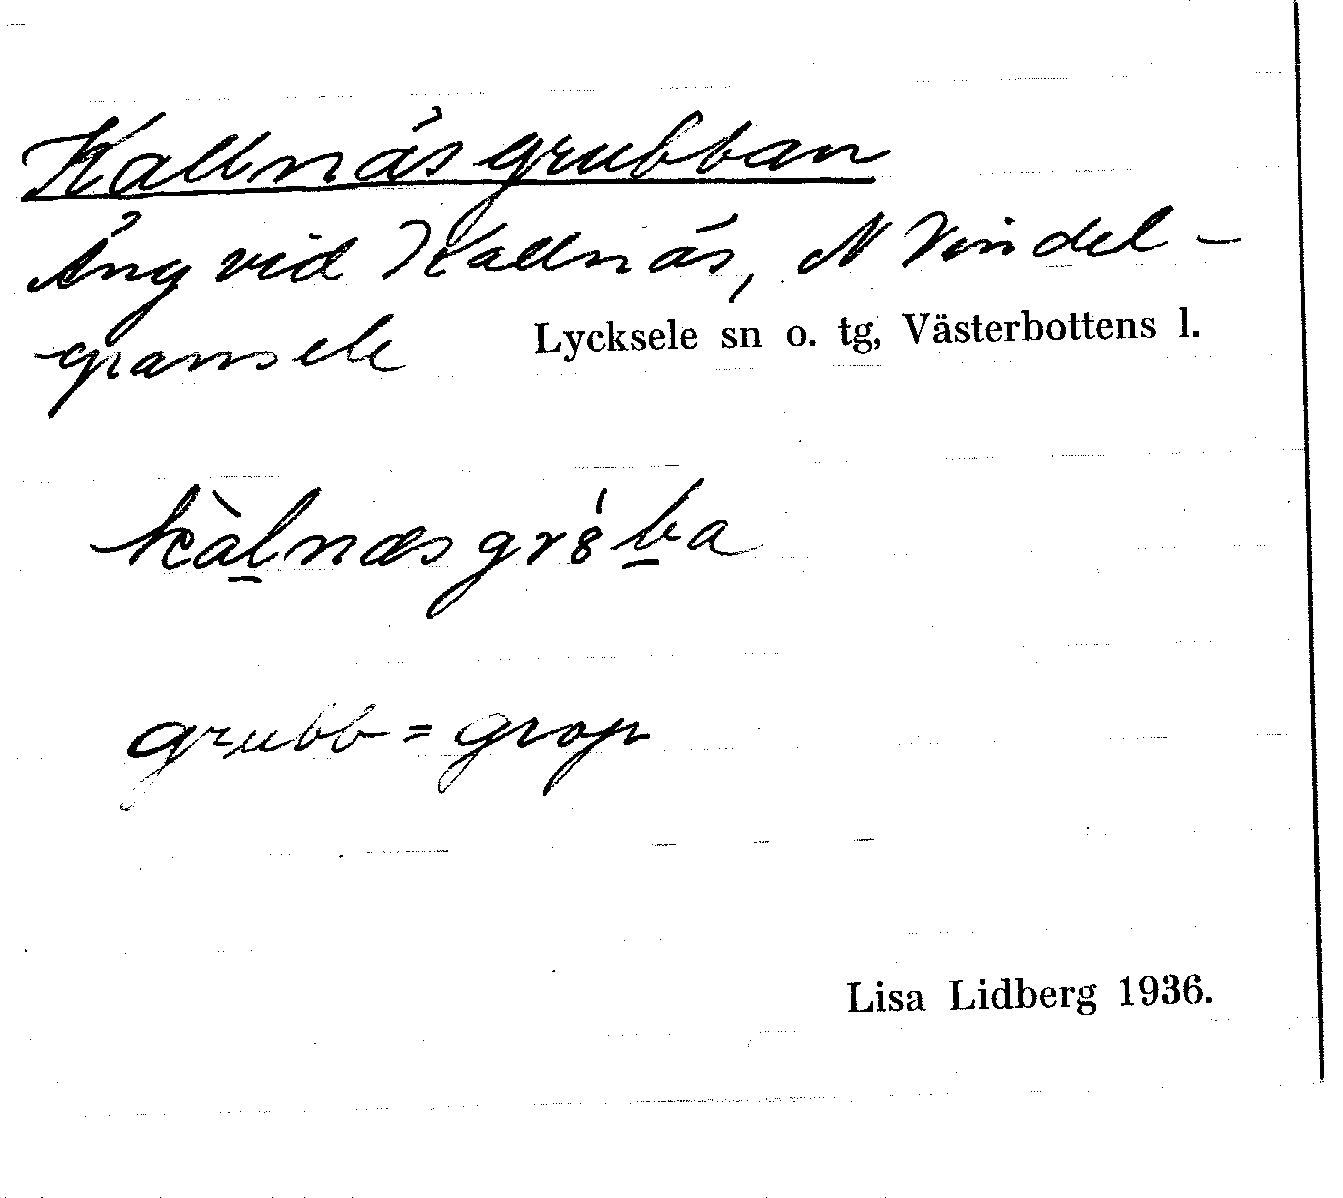 Kallnäsgrubban
Äng vid Kallnäs, N Vindel-
gransele
Lycksele sn o. tg, Västerbottens l.
kàl̲næsgr8́b̲a
grubb = grop
Lisa Lidberg 1936.